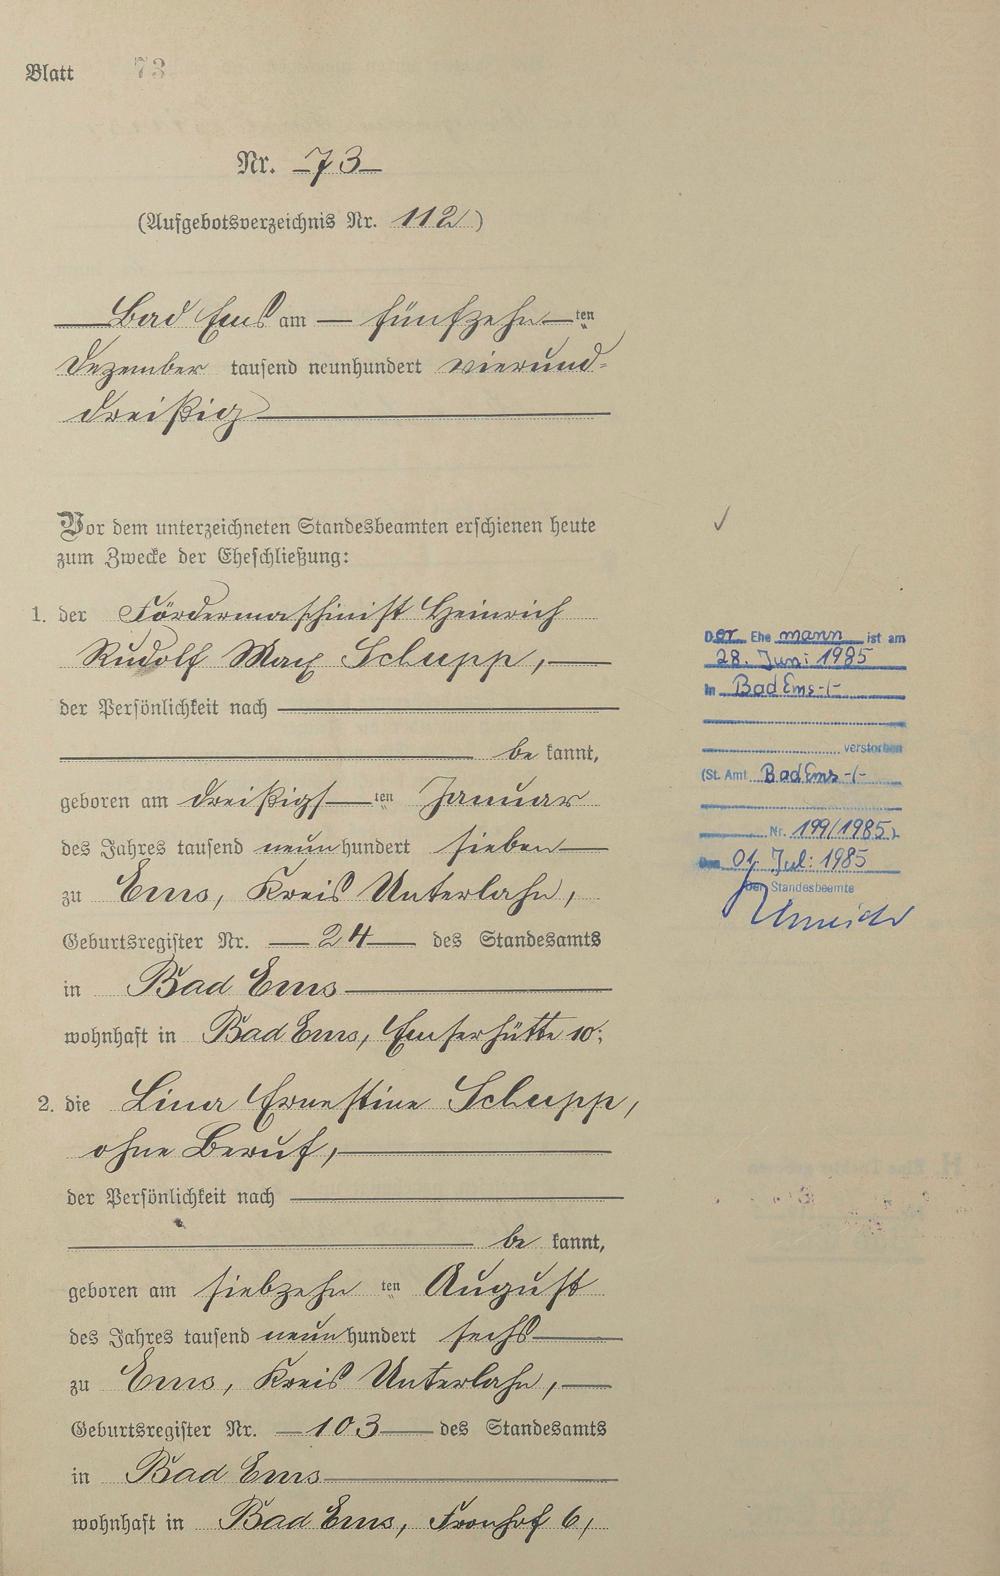 Blatt 73
Nr. 73
(Aufgebotsverzeichnis Nr. 112)
Bad Ems am fünfzehnten
Dezember tausend neunhundert vierund-
dreißig
Vor dem unterzeichneten Standesbeamten erschienen heute
zum Zwecke der Eheschließung:
1. der Fördermaschinist Heinrich
Rudolf Max Schupp,
der Persönlichkeit nach
be kannt,
geboren am dreißigsten Januar
des Jahres tausend neunhundert sieben
zu Ems, Kreis Unterlahn,
Geburtsregister Nr. 24 des Standesamts
in Bad Ems
wohnhaft in Bad Ems, Emserhütte 10;
2. die Lina Ernestine Schupp,
ohne Beruf,
der Persönlichkeit nach
be kannt,
geboren am siebzehnten August
des Jahres tausend neunhundert sechs
zu Ems, Kreis Unterlahn,
Geburtsregister Nr. 103 des Standesamts
in Bad Ems
wohnhaft in Bad Ems, Fronhof 6,
Der Ehemann ist am
28. Juni 1985
in Bad Ems -/-
verstorben
(St. Amt Bad Ems -/-
Nr. 199/1985)
Den 01. Juli 1985
Der Standesbeamte